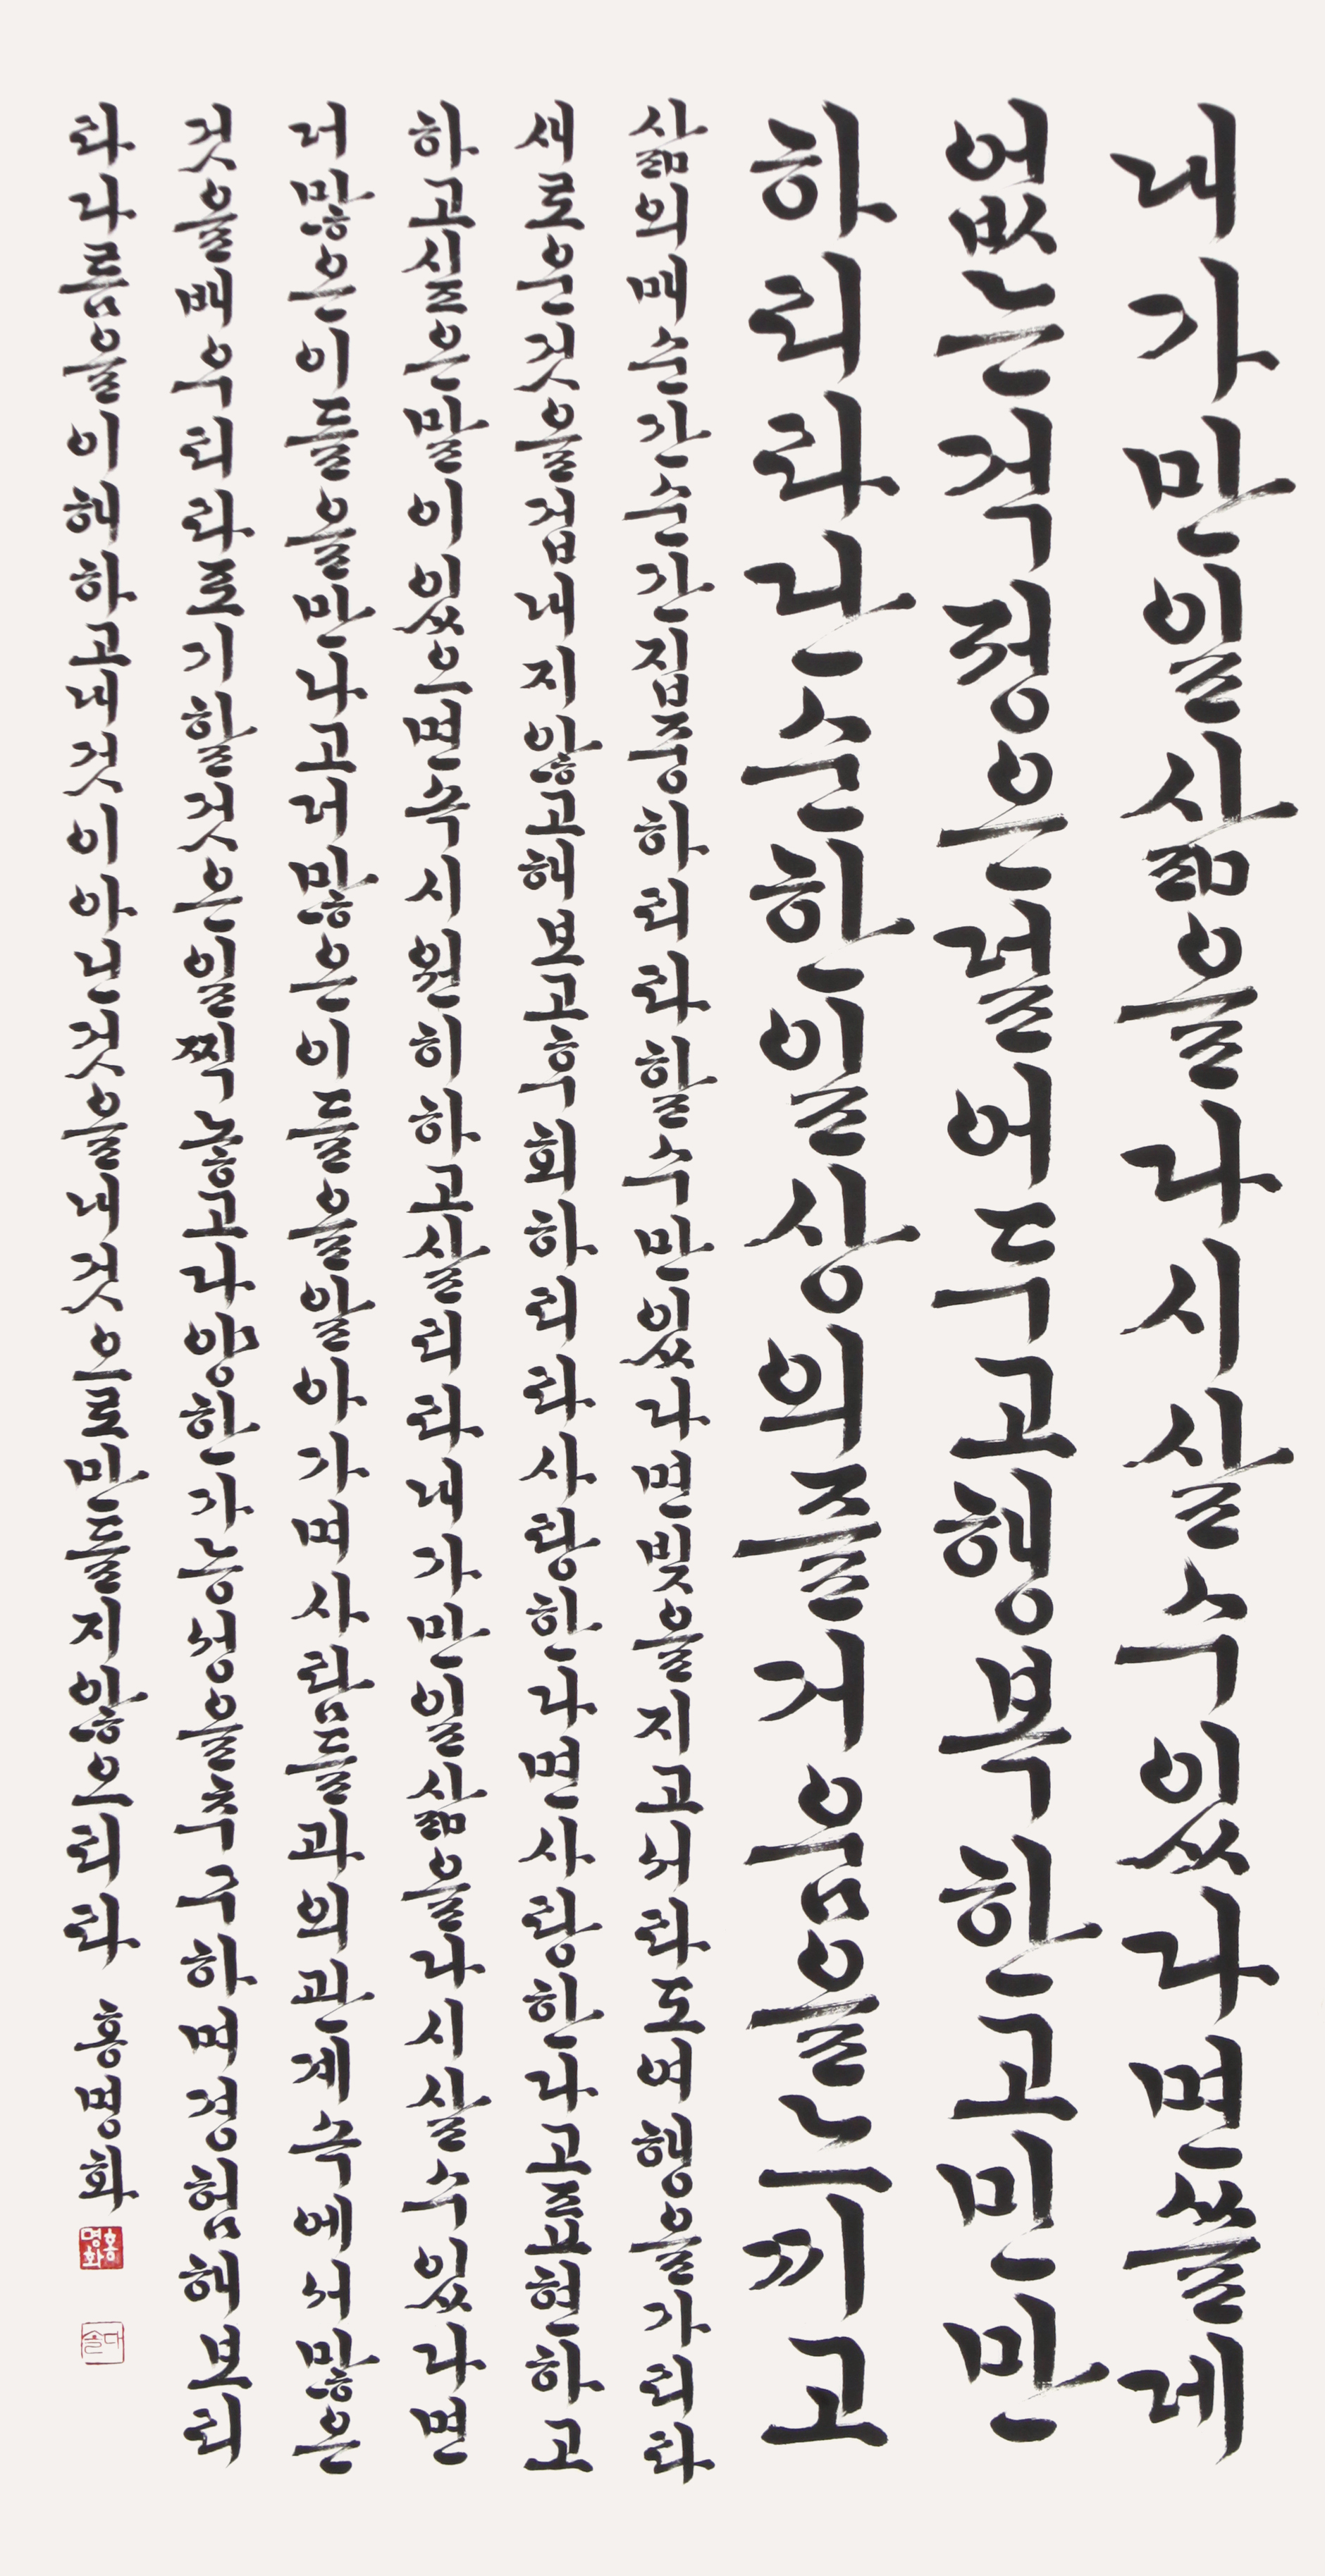 내가만일삶을다시살수있다면쓸데
없는걱정은덜어두고행복한고민만
하리라단순한일상의즐거움을느끼고
삶의매순간순간집중하리라할수만있다면빚을지고서라도여행을가리라
새로운것을겁내지않고해보고후회하리라사랑한다면사랑한다고표현하고
하고싶은말이있으면속시원히하고살리라내가만일삶을다시살수있다면
더많은이들을만나고더많은이들을알아가며사람들과의관계속에서많은
것을배우리라포기할것은일찍놓고다양한가능성을추구하며경험해보리
라다름을이해하고내것이아닌것을내것으로만들지않으리라 홍명화
홍명화
다솔